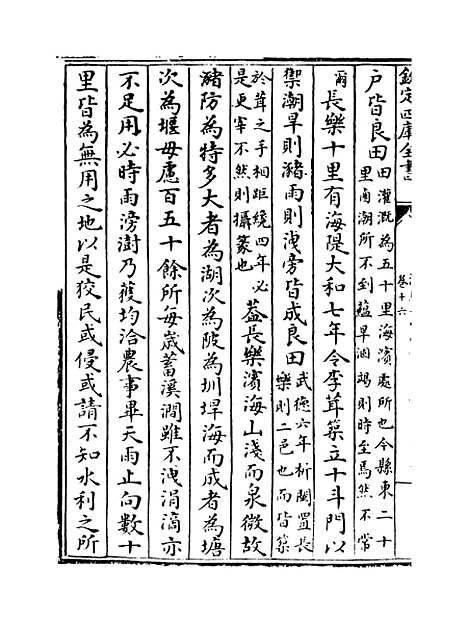 欽定四庫全書
卷十六
戶皆良田田灌溉為五十里海濱處所也今縣東二十
里鹵潮所不到蘊旱涸竭則時至焉然不常
爾長樂十里有海隄大和七年令李茸築立十斗門以
禦潮旱則瀦雨則洩旁皆成良田武德六年析閩置長
樂則二邑也而皆築
於茸之手相距纔四年必
是更宰不然則攝篆也葢長樂濱海山淺而泉微故
瀦防為特多大者為湖次為陂為圳埕海而成者為塘
次為堰毋慮百五十餘所每歲蓄溪澗雖不洩涓滴亦
不足用必時雨滂澍乃獲均洽農事畢天雨止向數十
里皆為無用之地以是狡民或侵或請不知水利之所